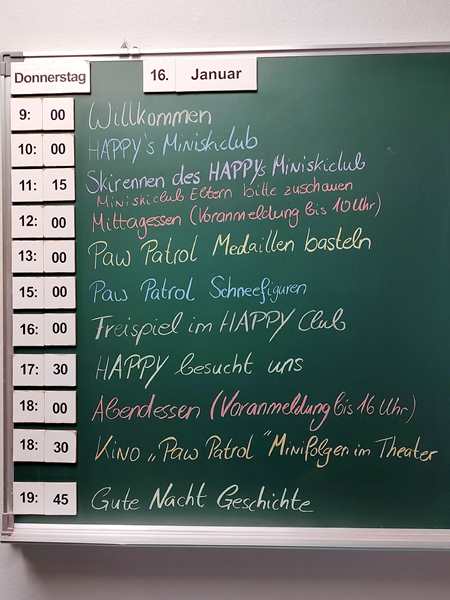 Donnerstag 16. Januar
9: 00 Willkommen
10: 00 HAPPY's Miniskiclub
11: 15 Skirennen des HAPPYs Miniskiclub
Miniskiclub Eltern bitte zuschauen
12: 00 Mittagessen (Voranmeldung bis 10 Uhr)
13: 00 Paw Patrol Medaillen basteln
15: 00 Paw Patrol Schneefiguren
16: 00 Freispiel im HAPPY Club
17: 30 HAPPY besucht uns
18: 00 Abendessen (Voranmeldung bis 16 Uhr)
18: 30 Kino „Paw Patrol" Minifolgen im Theater
19: 45 Gute Nacht Geschichte